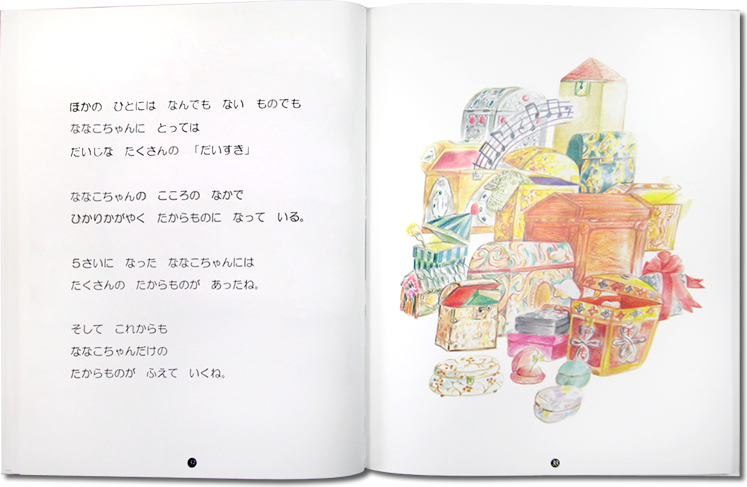 ほかの　ひとには　なんでも　ない　ものでも
ななこちゃんに　とっては
だいじな　たくさんの　「だいすき」
ななこちゃんの　こころの　なかで
ひかりかがやく　たからものに　なって　いる。
５さいに　なった　ななこちゃんには
たくさんの　たからものが　あったね。
そして　これからも
ななこちゃんだけの
たからものが　ふえて　いくね。